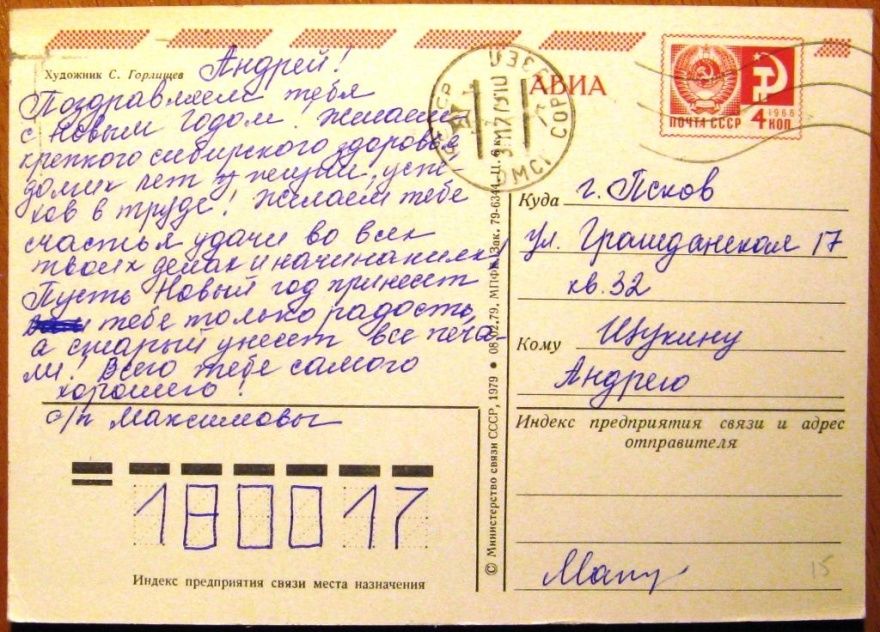 Художник С. Горлищев
Андрей!
Поздравляем тебя
с Новым годом. Желаем
крепкого сибирского здоровья
долгих лет жизни, успе-
хов в труде! Желаем тебе
счастья удачи во всех
твоих делах и начинаниях!
Пусть Новый год принесет
тебе только радость,
а старый унесет все печа-
ли! Всего тебе самого
хорошего!
с/п Максимовы
180017
Индекс предприятия связи места назначения
© Министерство связи СССР, 1979 • 08.02.79. МПФГ. Зак. 79-6344. Ц. 6 к.
СССР
ОМСК
АВИА
ПОЧТА СССР
4 КОП
1966
Куда г. Псков
ул. Гражданская 17
кв. 32
Кому Щукину
Андрею
Индекс предприятия связи и адрес
отправителя
15